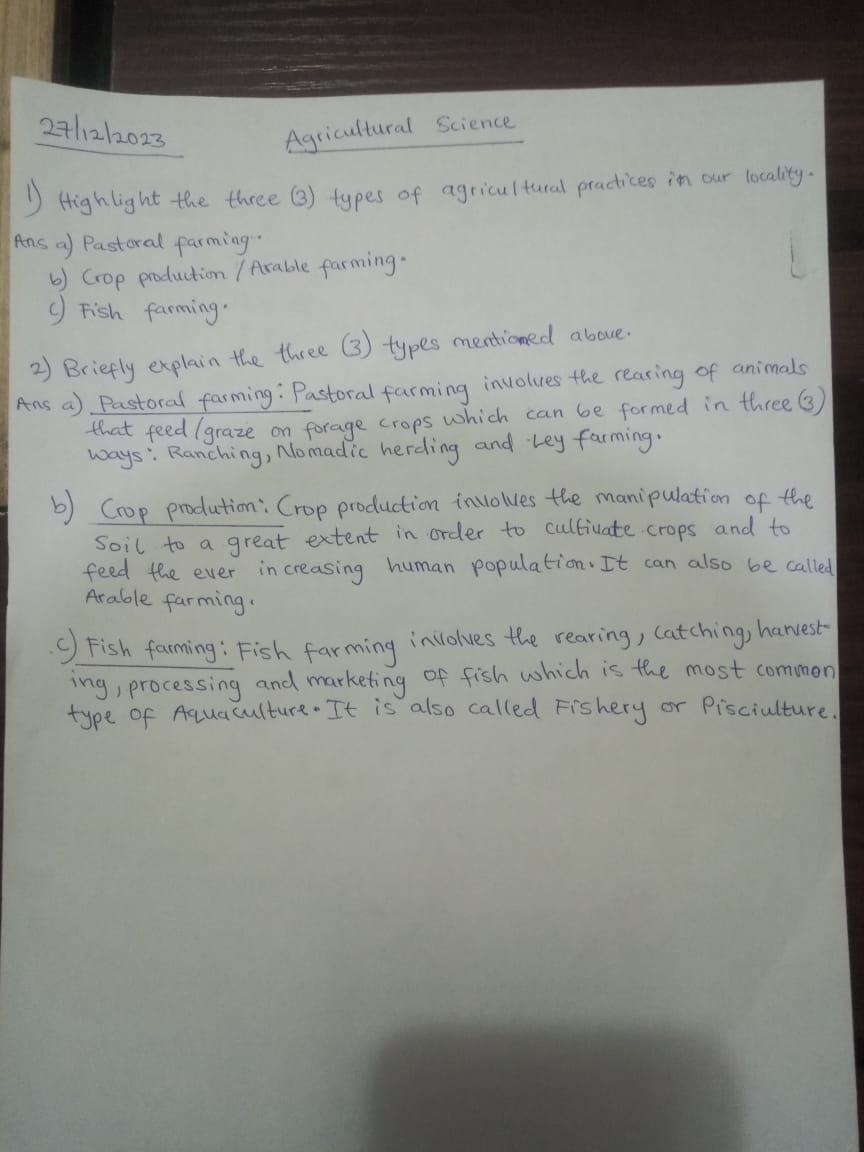 27/12/2023 Agricultural Science
1) Highlight the three (3) types of agricultural practices in our locality.
Ans a) Pastoral farming.
b) Crop production / Arable farming.
c) Fish farming.
2) Briefly explain the three (3) types mentioned above.
Ans a) Pastoral farming: Pastoral farming involves the rearing of animals
that feed/graze on forage crops which can be formed in three (3)
ways: Ranching, Nomadic herding and Ley farming.
b) Crop prodution: Crop production involves the manipulation of the
Soil to a great extent in order to cultivate crops and to
feed the ever increasing human population. It can also be called
Arable farming.
c) Fish farming: Fish farming involves the rearing, catching, harvest-
ing, processing and marketing of fish which is the most common
type of Aquaculture. It is also called Fishery or Pisciulture.